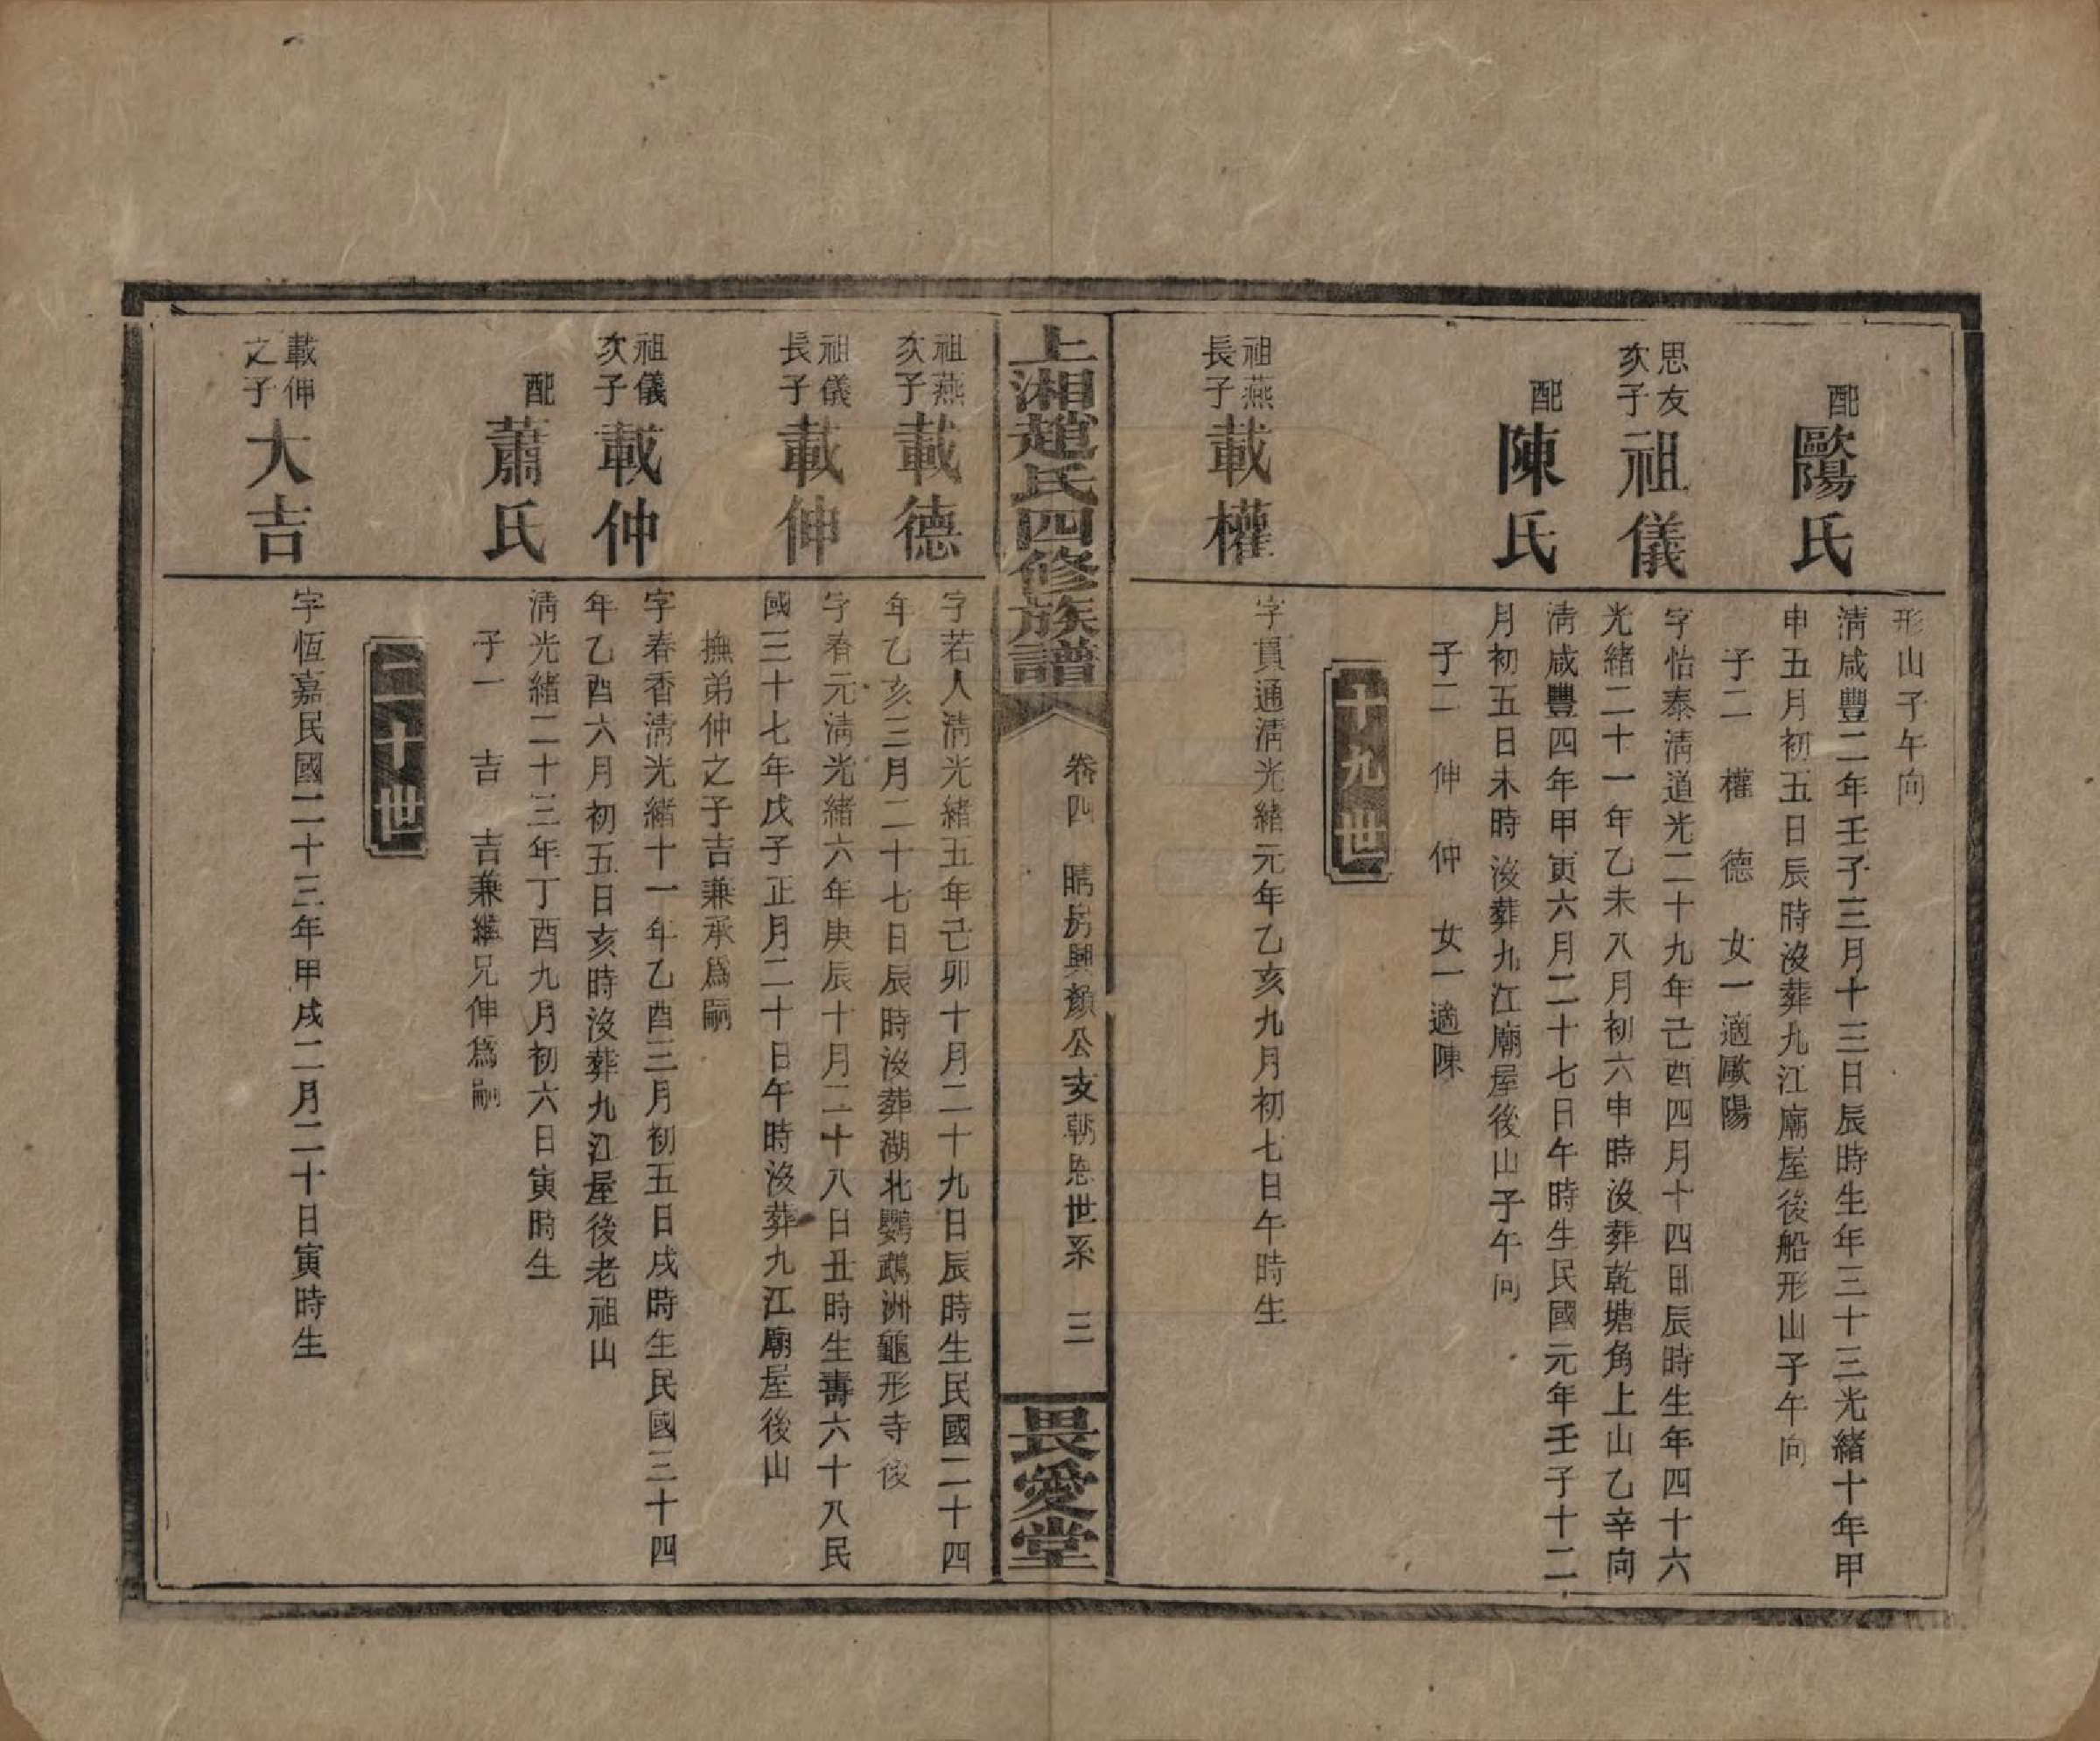 形山子午向
配
歐陽氏
清咸豐二年壬子三月十三日辰時生年三十三光緒十年甲
申五月初五日辰時沒葬九江廟屋後船形山子午向
子二 權 德 女一適歐陽
思友
次子
祖儀
字怡泰清道光二十九年己酉四月十四日辰時生年四十六
光緒二十一年乙未八月初六申時沒葬乾塘角上山乙辛向
配
陳氏
清咸豐四年甲寅六月二十七日午時生民國元年壬子十二
月初五日未時沒葬九江廟屋後山子午向
子二 伸 仲 女一適陳
十九世
祖燕
長子
載權
字貫通清光緒元年乙亥九月初七日午時生
上湘趙氏四修族譜
卷四 睛房興顏公支朝恩世系 三
畏愛堂
祖燕
次子
載德
字若人清光緒五年己卯十月二十九日辰時生民國二十四
年乙亥三月二十七日辰時沒葬湖北鸚鵡洲龜形寺後
祖儀
長子
載伸
字春元清光緒六年庚辰十月二十八日丑時生壽六十八民
國三十七年戊子正月二十日午時沒葬九江廟屋後山
撫弟仲之子吉兼承為嗣
祖儀
次子
載仲
字春香清光緒十一年乙酉三月初五日戌時生民國三十四
年乙酉六月初五日亥時沒葬九江屋後老祖山
配
蕭氏
清光緒二十三年丁酉九月初六日寅時生
子一 吉 吉兼繼兄伸為嗣
二十世
載伸
之子
大吉
字恆嘉民國二十三年甲戌二月二十日寅時生